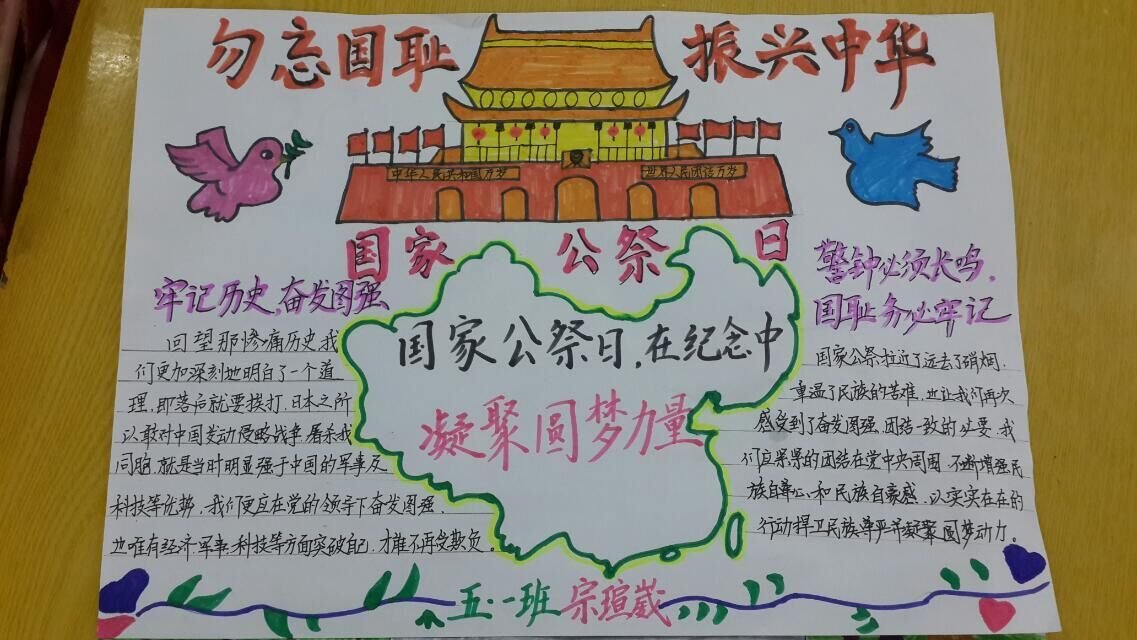 勿忘国耻 振兴中华
中华人民共和国万岁 世界人民团结万岁
国家公祭日
牢记历史，奋发图强
回望那惨痛历史，我
们更加深刻地明白了一个道
理，即落后就要挨打，日本之所
以敢对中国发动侵略战争，屠杀我
同胞，就是当时明显强于中国的军事及
科技等优势，我们更应在党的领导下奋发图强，
也唯有经济军事科技等方面突破自己，才能不再受欺负。
国家公祭日，在纪念中
凝聚圆梦力量
警钟必须长鸣，
国耻务必牢记
国家公祭拉近了远去了硝烟，
重温了民族的苦难，也让我们再次
感受到了奋发图强，团结一致的必要，我
们应紧紧的团结在党中央周围，不断增强民
族自尊心，和民族自豪感，以实实在在的
行动捍卫民族尊严并凝聚圆梦动力。
五·一班 宗瑄崴